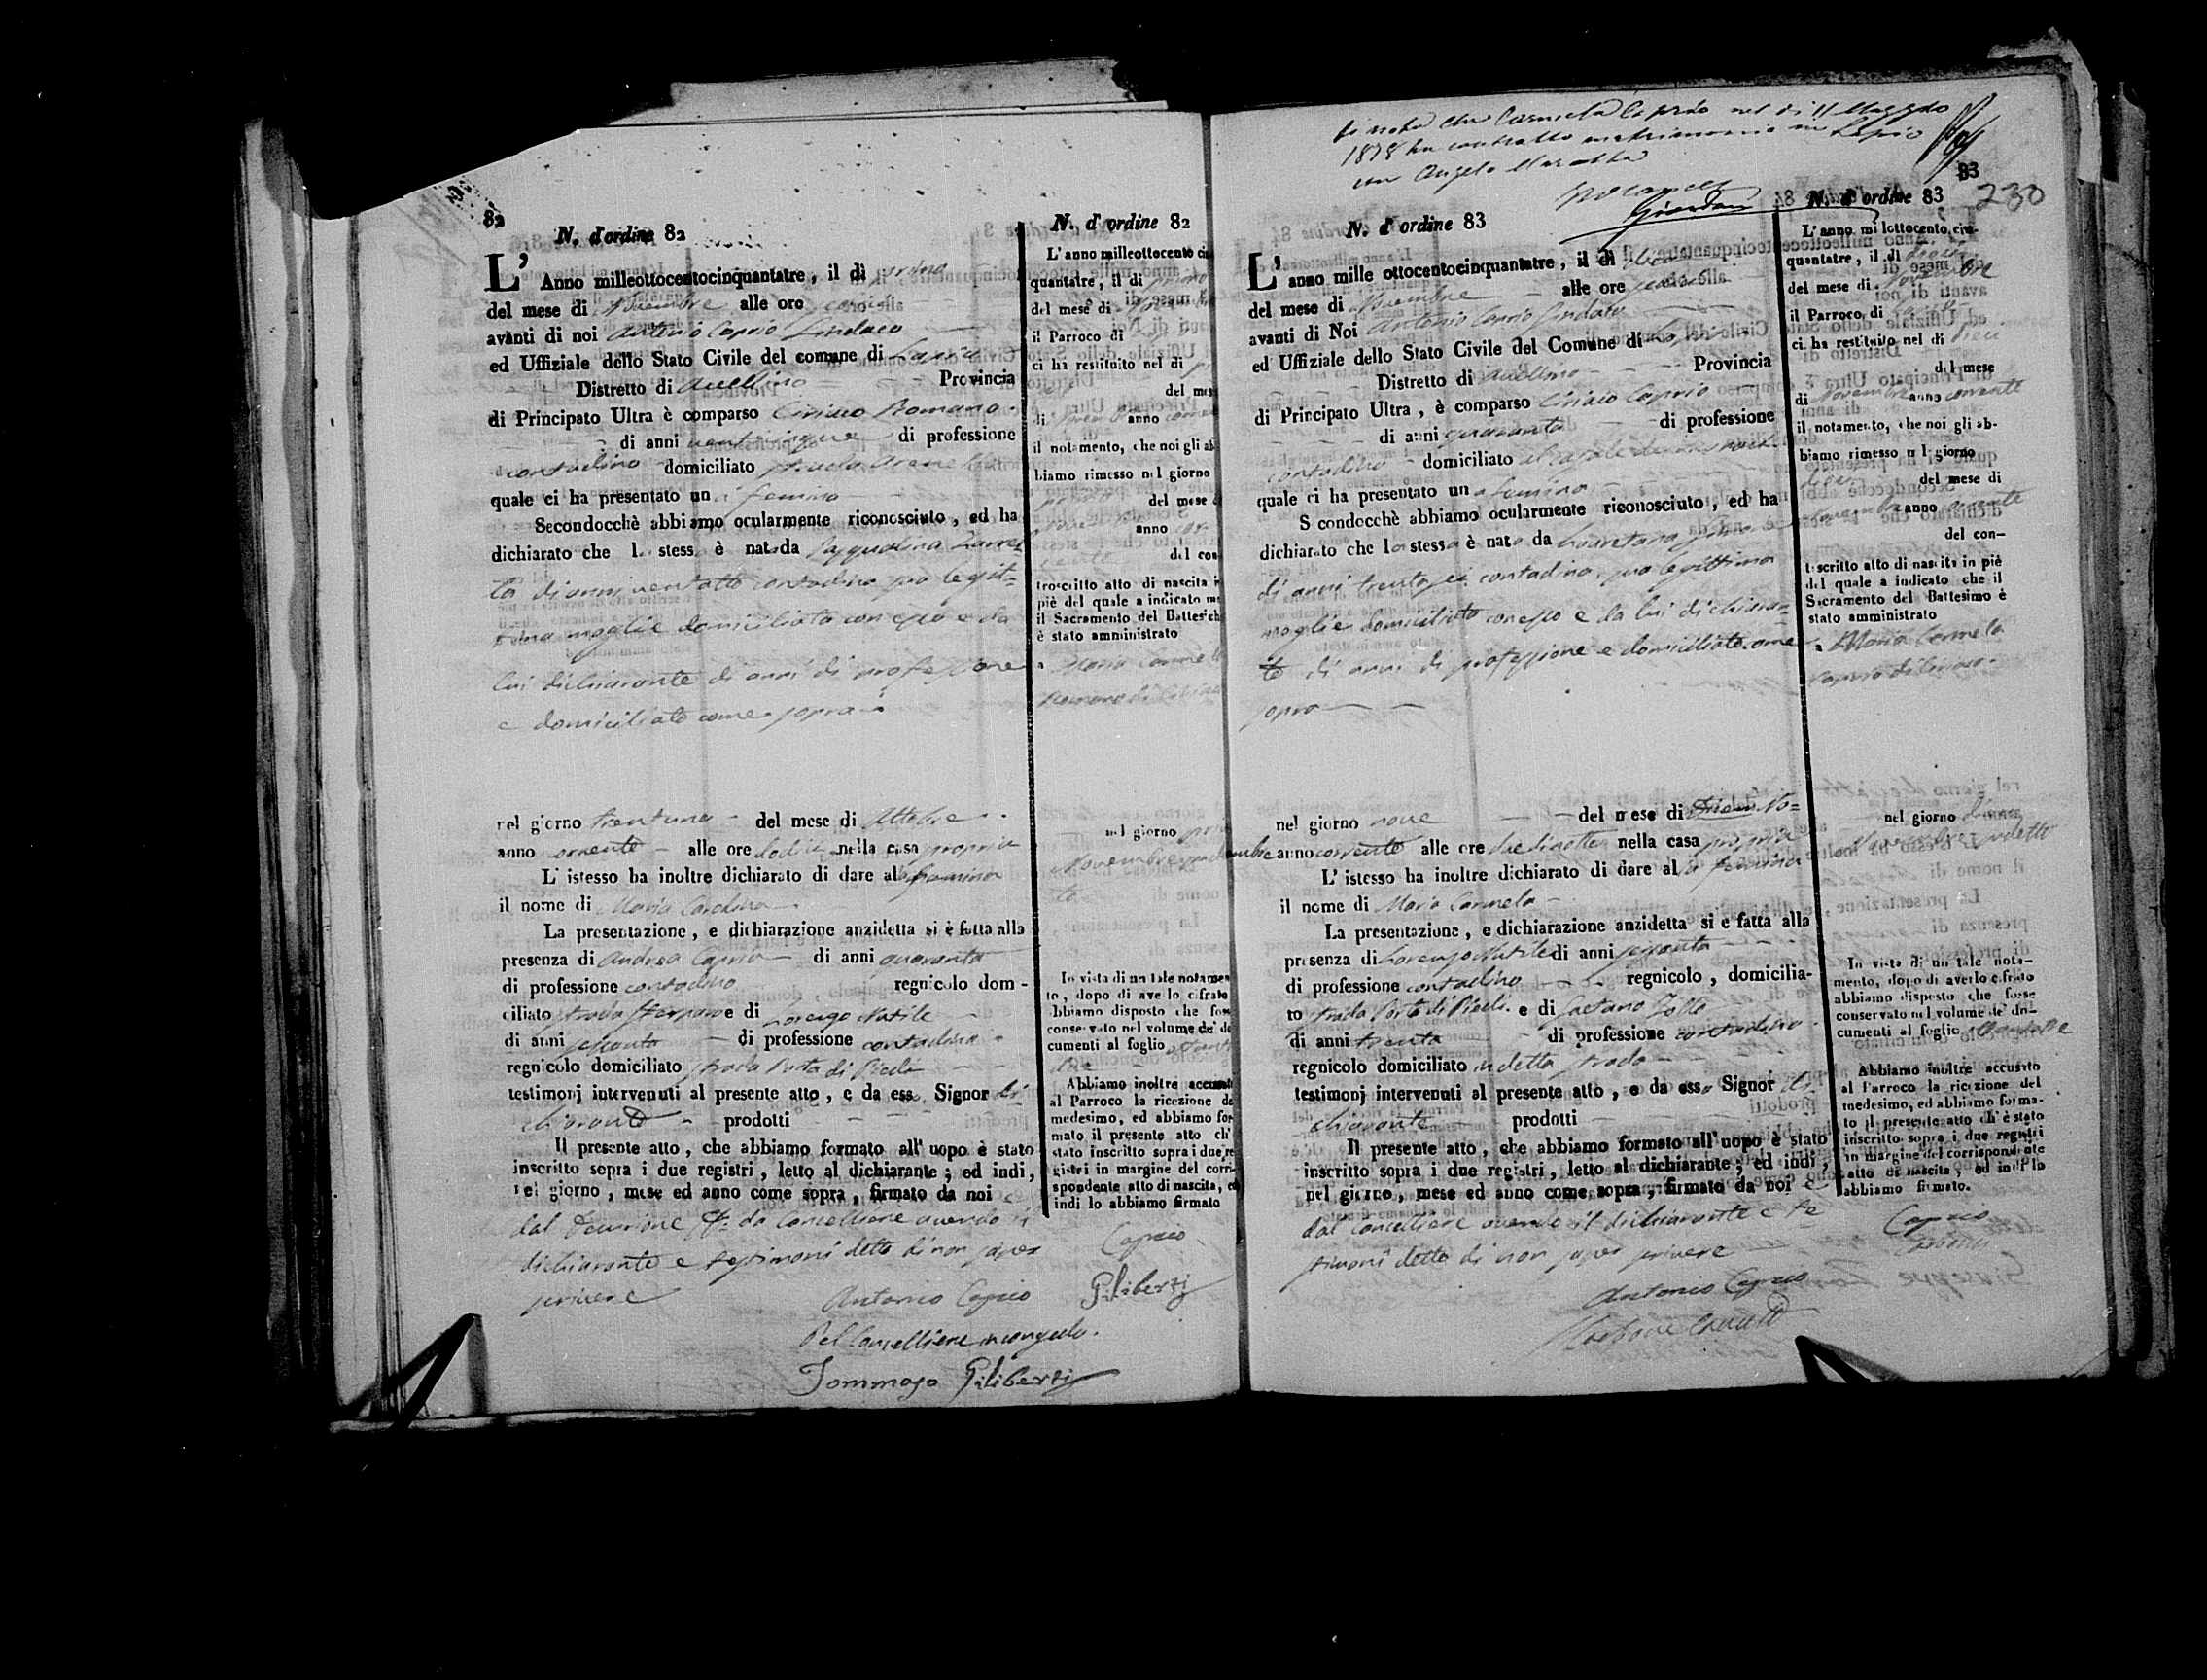 82
N. d'ordine 82
L' Anno milleottocentocinquantatre, il di primo
del mese di Novembre alle ore
avanti di noi Antonio Caprio Sindaco
ed Uffiziale dello Stato Civile del comune di Lapio
Distretto di Avellino Provincia
di Principato Ultra è comparso Ciriaco Romano
di anni venticinque di professione
contadino domiciliato strada
quale ci ha presentato una femina
Secondocchè abbiamo ocularmente riconosciuto, ed ha
dichiarato che l stess è nata da Pasqualina
di anni ventotto contadina sua legit=
tima moglie domiciliata con esso e da
lui dichiarante di anni di professione
e domiciliato come sopra
nel giorno trentuno del mese di Ottobre
anno corrente alle ore dodici nella casa propria
L' istesso ha inoltre dichiarato di dare alla femina
il nome di Maria
La presentazione, e dichiarazione anzidetta si è fatta alla
presenza di Andrea Caprio di anni quaranta
di professione contadino regnicolo dom-
ciliato strada e di Lorenzo Natile
di anni sessanta di professione contadino
regnicolo domiciliato strada Porta di Piedi
testimonj intervenuti al presente atto, e da ess Signor di
chiarante prodotti
Il presente atto, che abbiamo formato all' uopo è stato
inscritto sopra i due registri, letto al dichiarante; ed indi,
nel giorno, mese ed anno come sopra, firmato da noi e
dal Decurione ff. da Cancelliere avendo il
dichiarante e testimoni detto di non saper
scrivere
Antonio Caprio
Pel Cancelliere in congedo.
Tommaso Piliberti
N. d' ordine 82
L' anno milleottocento cin
quantatre, il di primo
del mese di
il Parroco di
ci ha restituito nel di
del mese
di Novembre anno
il notamento, che noi gli ab
biamo rimesso nel giorno
del mese
anno cor-
rente del con
troscritto atto di nascita in
piè del quale a indicato
il Sacramento del Battes ch
è stato amministrato
a Maria
Romano di Ciriaco
nel giorno primo
Novembre
In vista di un tale notamen
to, dopo di averlo cifrato
abbiamo disposto che fosse
conservato nel volume de' do
cumenti al foglio
Abbiamo inoltre accusato
al Parroco la ricezione de
medesimo, ed abbiamo for
mato il presente atto ch'
stato inscritto sopra i due re
gistri in margine del corri-
spondente atto di nascita, ed
indi lo abbiamo firmato
Caprio
Piliberti
Si nota che Carmela Caprio nel di 11 Maggio
1878 ha contratto matrimonio in Lapio
con Angelo
83
230
N. d' ordine 83
L' anno mille ottocentocinquantatre, il di dieci
del mese di Novembre alle ore
avanti di Noi Antonio Caprio Sindaco
ed Uffiziale dello Stato Civile del Comune di Lapio
Distretto di Avellino Provincia
di Principato Ultra, è comparso Ciriaco Caprio
di anni quaranta di professione
contadino domiciliato
quale ci ha presentato una femina
S condocchè abbiamo ocularmente riconosciuto, ed ha
dichiarato che la stessa è nata da
di anni trentasei contadina sua legittima
moglie domiciliata con esso e da lui dichiaran=
te di anni di professione e domiciliato come
sopra
nel giorno nove del mese di No=
vembre anno corrente alle ore due di notte nella casa propria
L' istesso ha inoltre dichiarato di dare alla femina
il nome di Maria Carmela
La presentazione, e dichiarazione anzidetta si e fatta alla
presenza di Lorenzo Natile di anni sessanta
di professione contadino regnicolo, domicilia-
to strada Porta di Piedi e di Gaetano
di anni trenta di professione contadino
regnicolo domiciliato in detta strada
testimonj intervenuti al presente atto, e da ess Signor di
chiarante prodotti
Il presente atto, che abbiamo formato all' uopo è stato
inscritto sopra i due registri, letto al dichiarante; ed indi,
nel giorno, mese ed anno come sopra, firmato da noi e
dal Cancelliere avendo il dichiarante e te
stimoni detto di non saper scrivere
Antonio Caprio
N. d' ordine 83
L' anno mi lottocento cin-
quantatre, il di dieci
del mese di Novembre
il Parroco di
ci ha restituito nel di dieci
del mese
di Novembre anno corrente
il notamento, che noi gli ab-
biamo rimesso nel giorno
dieci del mese di
Novembre anno corrente
del con-
troscritto atto di nascita in piè
del quale a indicato che il
Sacramento del Battesimo è
stato amministrato
a Maria Carmela
Caprio di Ciriaco
nel giorno dieci
Novembre sudetto
In vista di un tale nota-
mento, dopo di averlo cifrato
abbiamo disposto che fosse
conservato nel volume de' do-
cumenti al foglio
Abbiamo inoltre accusato
al Parroco la ricezione del
medesimo, ed abbiamo forma-
to il presente atto ch' è stato
inscritto sopra i due registri
in margine del corrispondente
atto di nascita, ed indi lo
abbiamo firmato.
Caprio